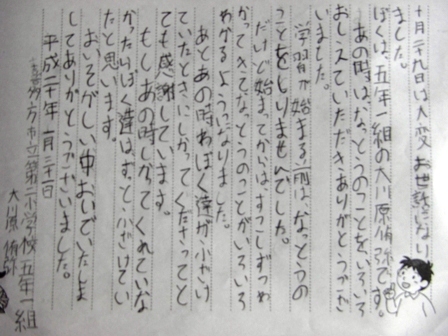 十一月二十九日は大変お世話になり
ました。
ぼくは、五年一組の大川原脩弥です。
あの時は、なっとうのことをいろいろ
おしえていただきありがとうござ
いました。
学習が始まる前は、なっとうの
ことをしりませんでした。
だけど始まってからは、すこしずつわ
かってきて、なっとうのことがいろいろ
わかるようになりました。
あとあの時わぼく達がふざけ
ていたときに、しかってくださってと
ても感謝しています。
もし、あの時しかってくれていな
かったらぼく達はずっとふざけてい
たと思います。
おいそがしい中おいでいただきま
してありがとうございました。
平成二十年一月三十一日
喜多方市立第一小学校五年一組
大川原脩弥